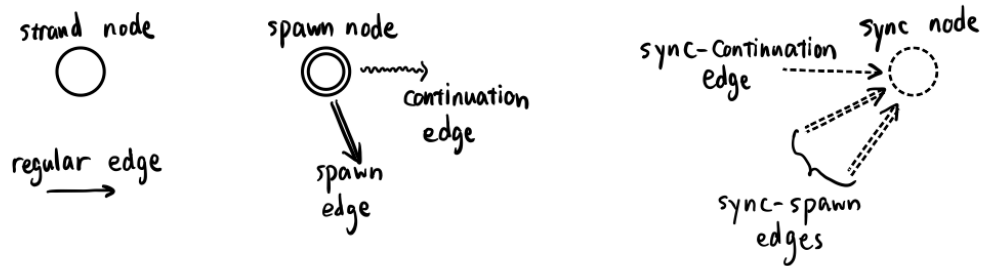 strand node
regular edge
spawn node
continuation
edge
spawn
edge
sync node
sync-continuation
edge
sync-spawn
edges